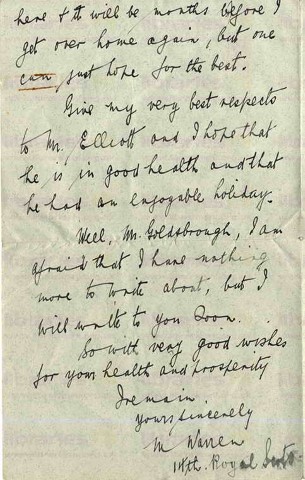 here & it will be months before I
get over home again, but one
can, just hope for the best.
Give my very best respects
to Mr. Elliott and I hope that
he is in good health and that
he had an enjoyable holiday.
Well, Mr. Goldsbrough, I am
afraid that I have nothing
more to write about, but I
will write to you soon.
So with very good wishes
for your health and prosperity
I remain.
Yours sincerely
M Warren
Royal